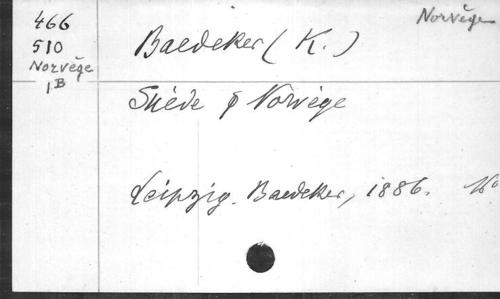 Norvège
466
510
Norvège
1B
Baedeker (K.)
Suède & Norvège
Leipzig. Baedeker, 1886.